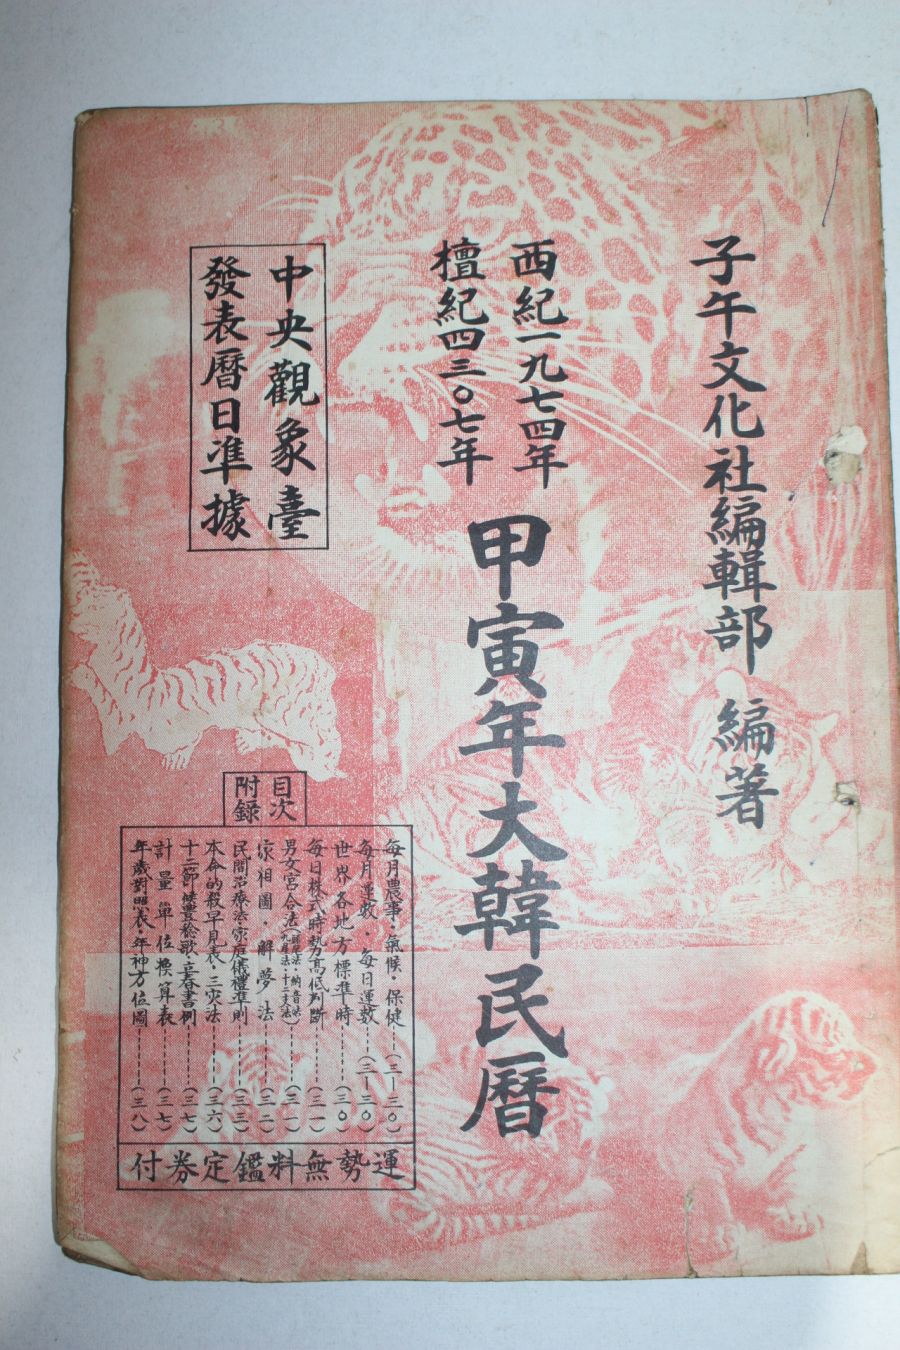 子午文化社編輯部 編著
西紀一九七四年
檀紀四三〇七年
甲寅年大韓民曆
中央觀象臺
發表曆日準據
目次
附録
每月農事·氣候·保健(三—三〇)
每月運數·每日運數(三—三〇)
世界各地方標準時(三〇)
每日株式時勢高低判斷(三一)
男女宮合法(· 納音法 · 九宮法 · 十二支法)(三一)
家相圖·解夢法(三二)
民間治療法·家庭儀禮準則(三三)
本命的殺早見表·三灾法(三六)
十二節·立春書例(三七)
計量單位換算表(三七)
年歲對照表·年神方位圖(三八)
運勢無料鑑定券付